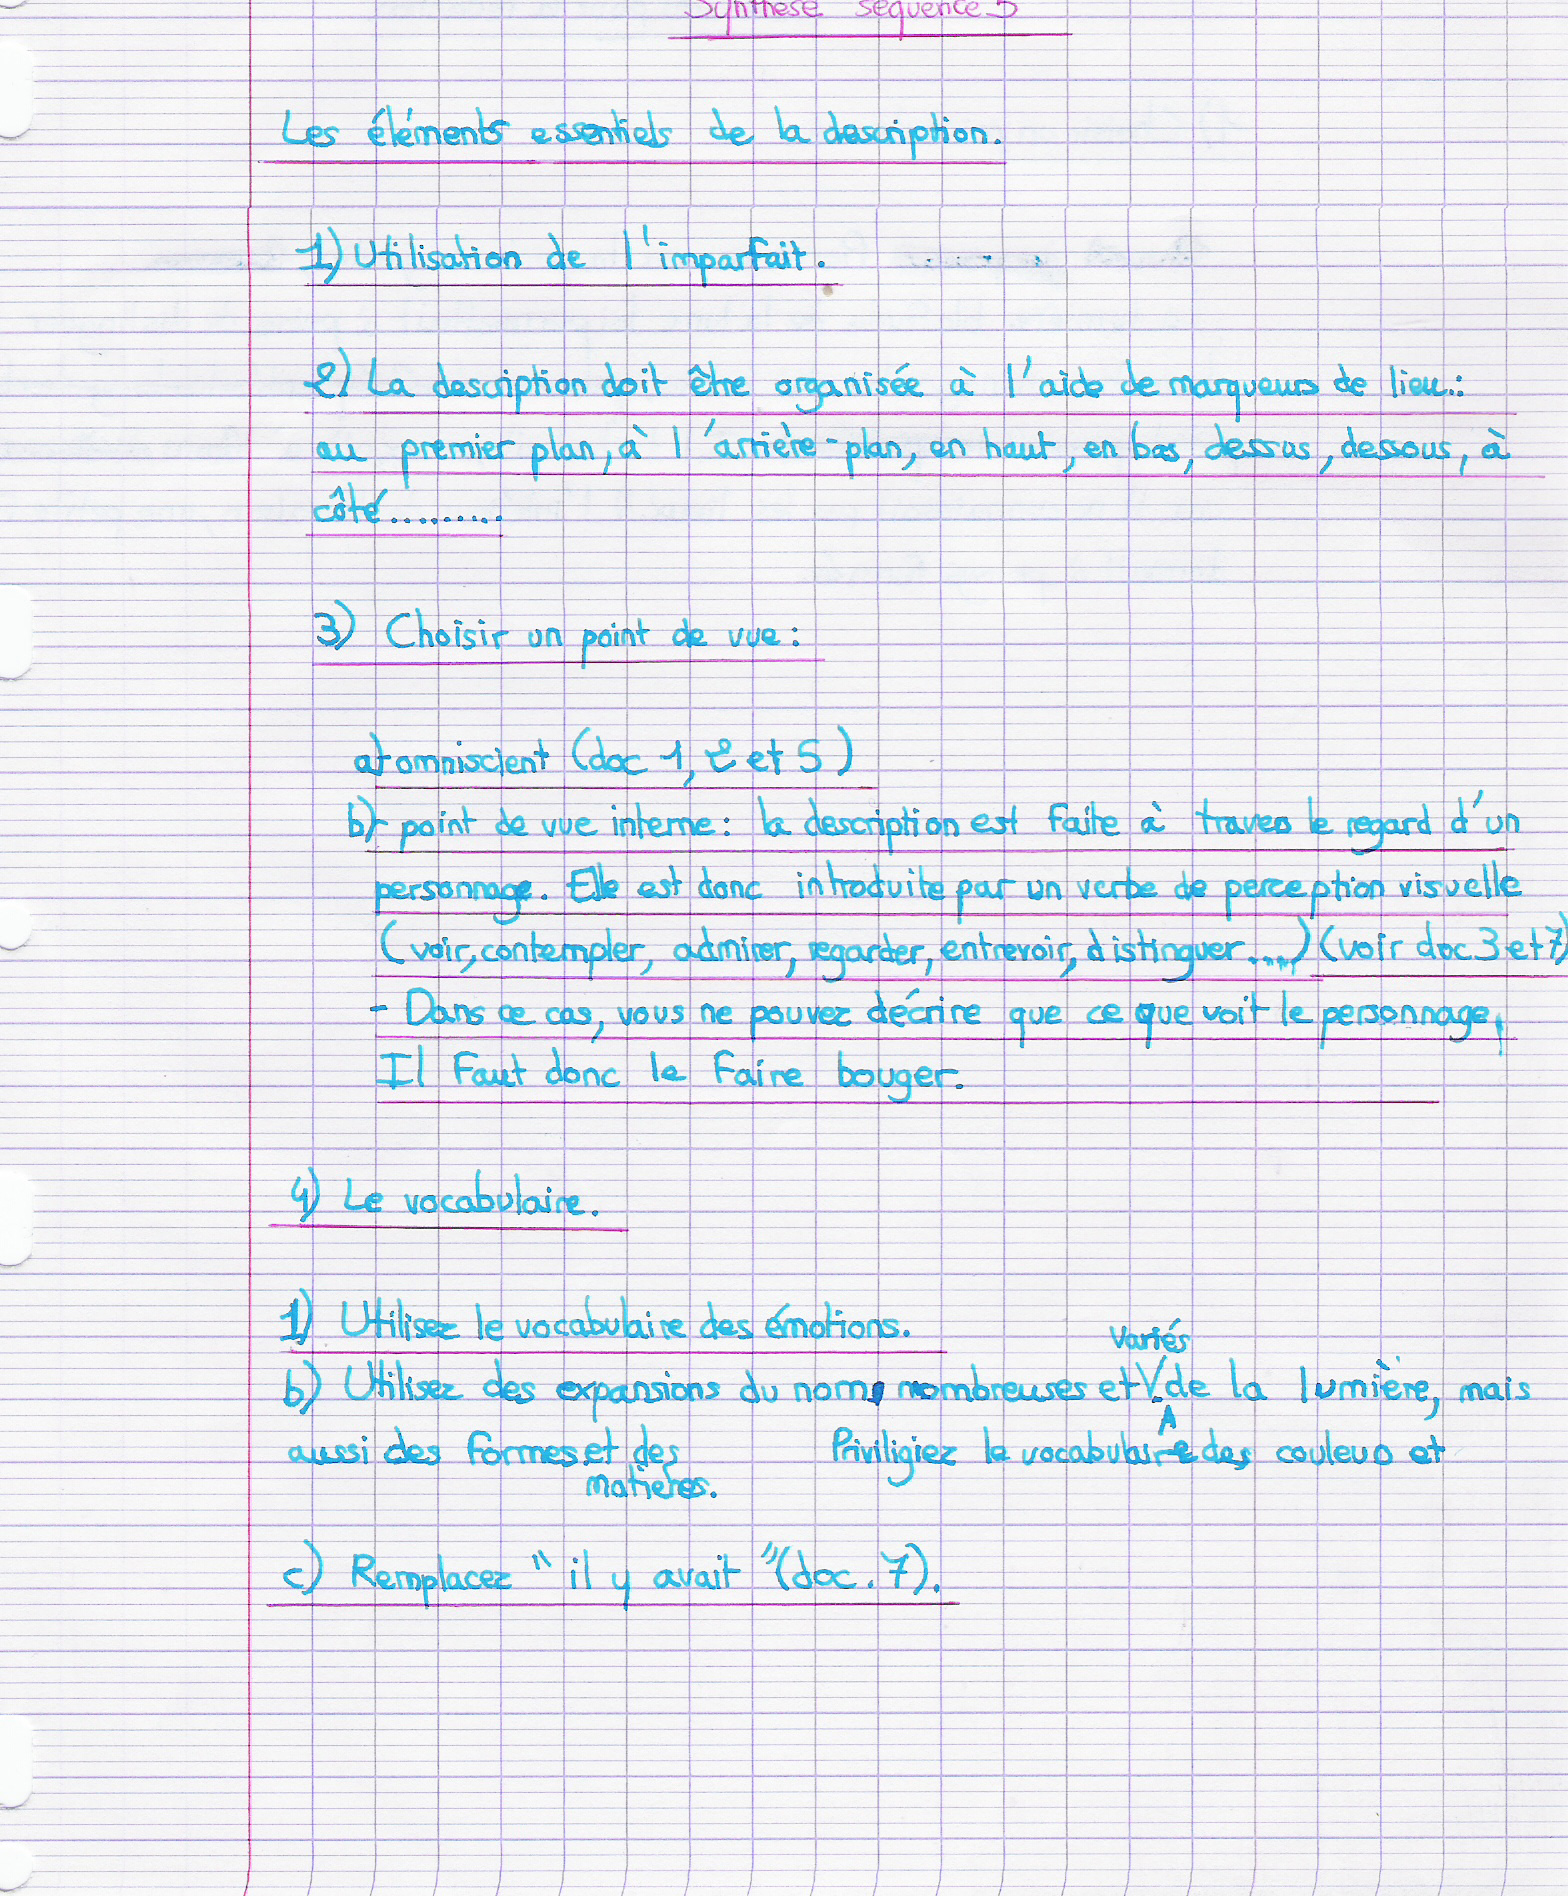 Synthèse séquence 5
Les éléments essentiels de la description.
1) Utilisation de l'imparfait.
2) La description doit être organisée à l'aide de marqueurs de lieu.:
au premier plan, à l'arrière-plan, en haut, en bas, dessus, dessous, à
côté.........
3) Choisir un point de vue :
a) omniscient (doc 1, 2 et 5)
b) point de vue interne : la description est faite à travers le regard d'un
personnage. Elle est donc introduite par un verbe de perception visuelle
(voir, contempler, admirer, regarder, entrevoir, distinguer.....) (voir doc 3 et 7)
- Dans ce cas, vous ne pouvez décrire que ce que voit le personnage,
Il faut donc le faire bouger.
4) Le vocabulaire.
1) Utilisez le vocabulaire des émotions.
variés
b) Utilisez des expansions du nom, nombreuses et V de la lumière, mais
aussi des formes et des Priviligiez le vocabulaire des couleurs et
matières.
c) Remplacez "il y avait" (doc. 7).